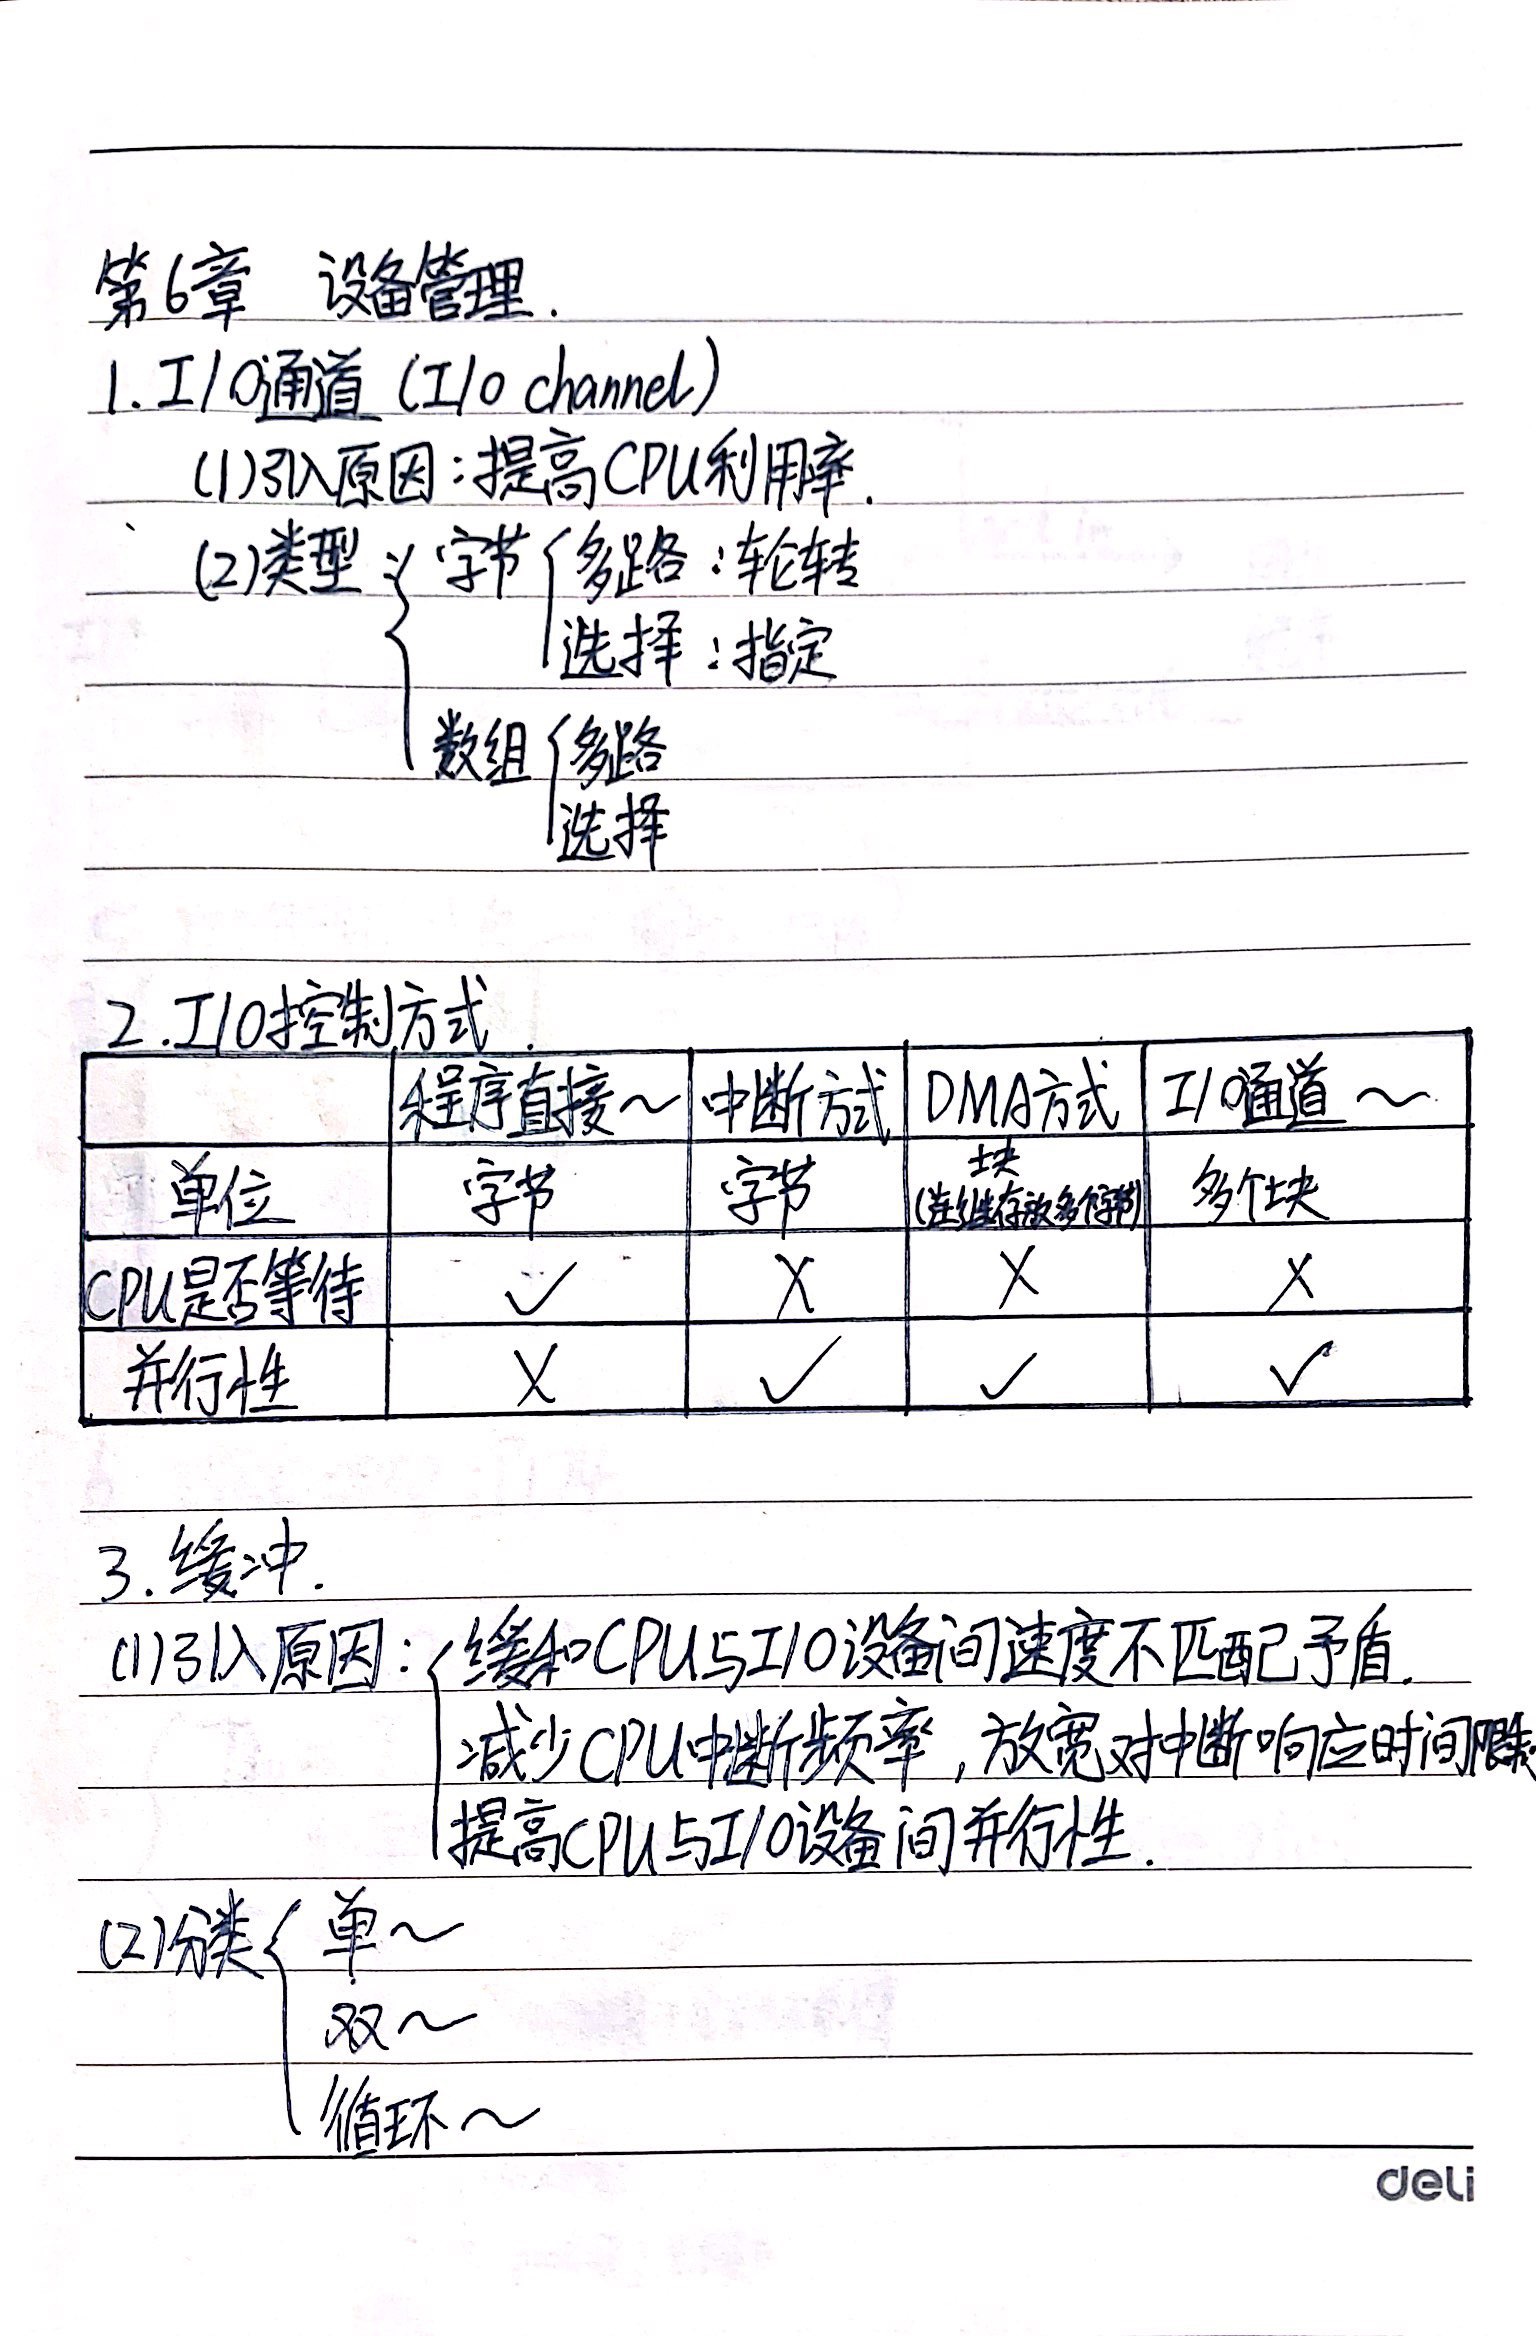 第6章 设备管理.
1. I/O通道 (I/O channel)
(1)引入原因:提高CPU利用率.
(2)类型: { 字节 { 多路:轮转
选择:指定
数组 { 多路
选择
2. I/O控制方式.
程序直接~ 中断方式 DMA方式 I/O通道~
单位 字节 字节 块(连续存放多个字节) 多个块
CPU是否等待 ✓ X X X
并行性 X ✓ ✓ ✓
3. 缓冲.
(1)引入原因: { 缓和CPU与I/O设备间速度不匹配矛盾.
减少CPU中断频率, 放宽对中断响应时间限制
提高CPU与I/O设备间并行性.
(2)分类 { 单~
双~
循环~
deli